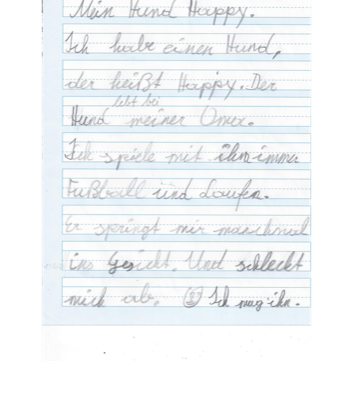 Mein Hund Happy.
Ich habe einen Hund,
der heißt Happy. Der
lebt bei
Hund meiner Oma.
Ich spiele mit ihm immer
Fußball und Laufen.
Er springt mir manchmal
ins Gesicht. Und schleckt
mich ab. Ich mag ihn.